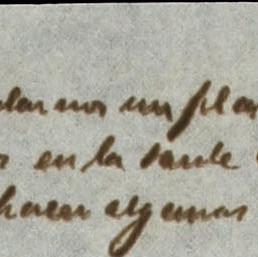 larnos un pla
en la tarde
hacer algunas